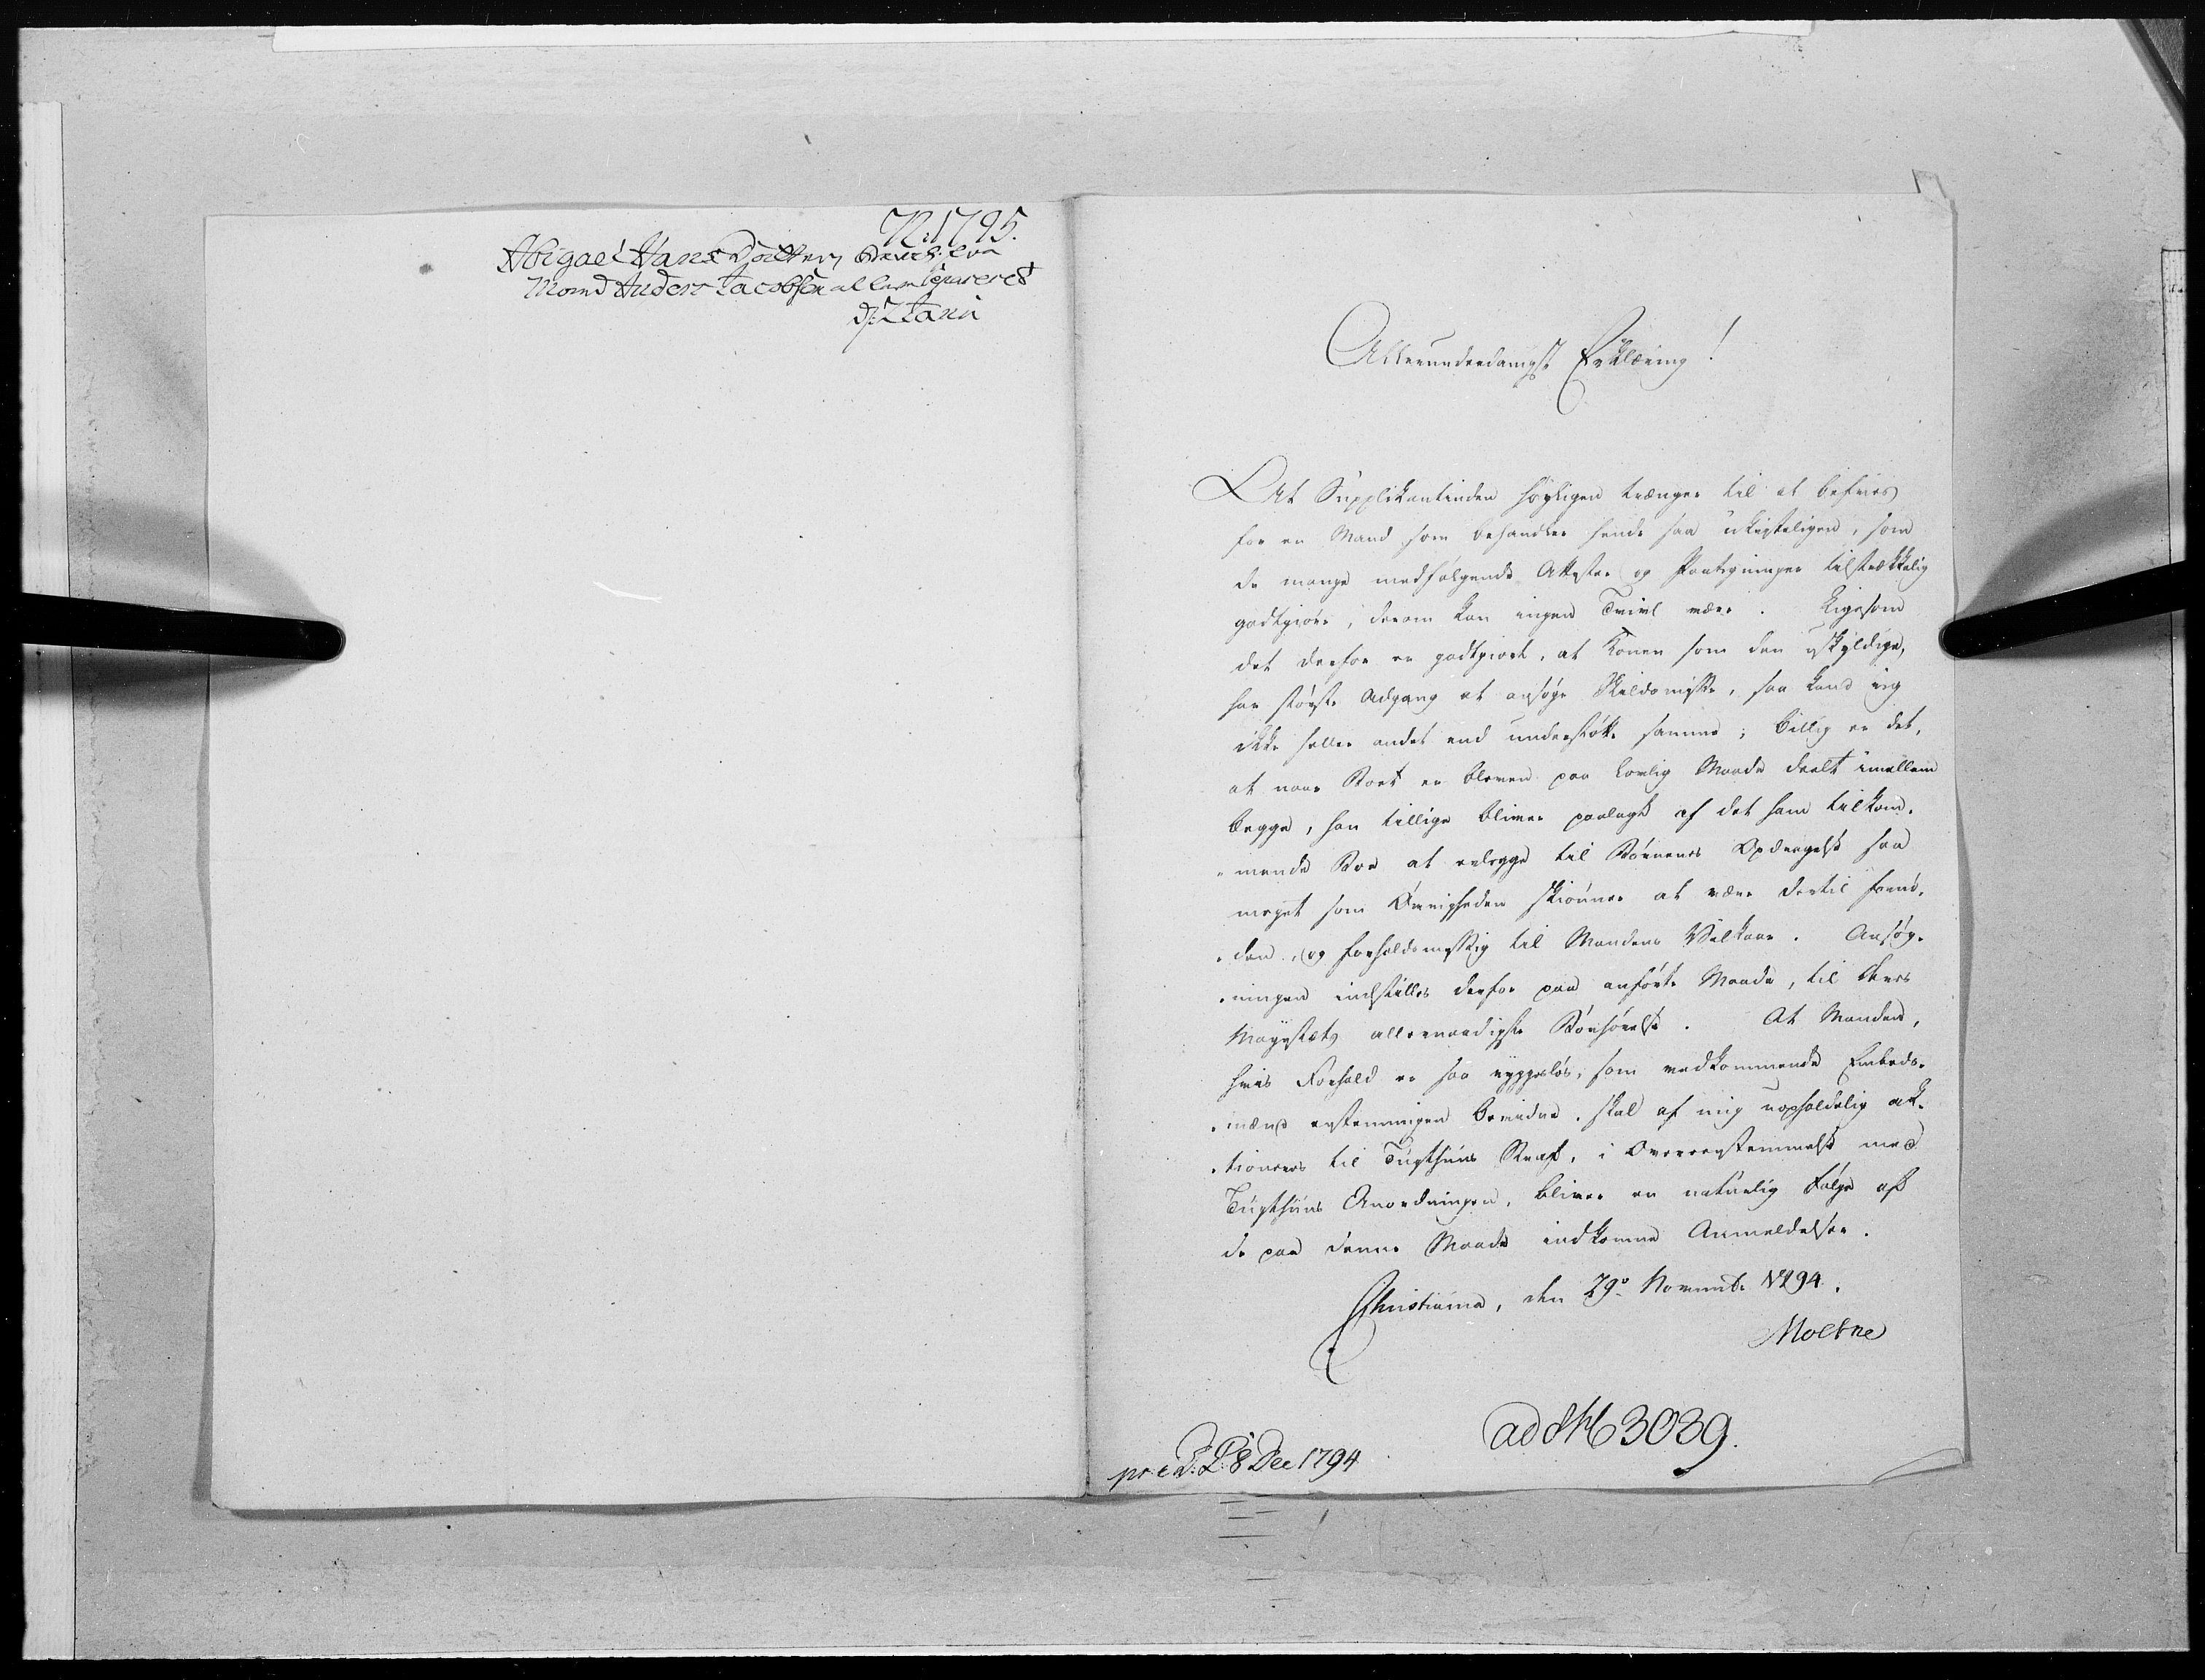 N: 1795.
Abigael Hans Datter, fra
Mand Anders Jacobsen at separeres
d: 2 Janu
Allerunderdanigst Erklæring!
At Supplikantinden høyligen trænger til at befries
for en Mand som behandler hende saa ukristeligen, som
de mange medfølgende Attester og Paategninger tilstrækkelig
godtgiøre, derom kan ingen Tvivl være. Ligesom
det derfor er godtgiort, at Konen som den uskyldige,
har største Adgang at ansøge Skilsmisse, saa kand ieg
ikke heller andet end understøtte samme; billig er det,
at naar Boet er bleven paa lovlig Maade deelt imellem
begge, han tillige bliver paalagt af det ham tilkom-
-mende Boe at erlegge til Børnenes Opdragelse saa
meget som Øvrigheden skiønner at være dertil fornø-
-den, og forholdsmessig til Mandens Vilkaar. Ansøg-
-ningen indstilles derfor paa anførte Maade, til Deres
Mayestæts allernaadigste Bønhørelse. At Manden,
hvis Forhold er saa ryggesløs, som vedkommende Embeds-
-mænd eenstemmigen bevidne, skal af mig uopholdelig ak-
-tioneres til Tugthuus Straf, i Overeenstemmelse med
Tugthuus Anordningen, bliver en naturlig Følge af
de paa denne Maade indkomne Anmeldelser.
Christiania, den 29de Novembr 1794.
Moltke
ad No 3039.
pr: c D: L: 8 Dec 1794